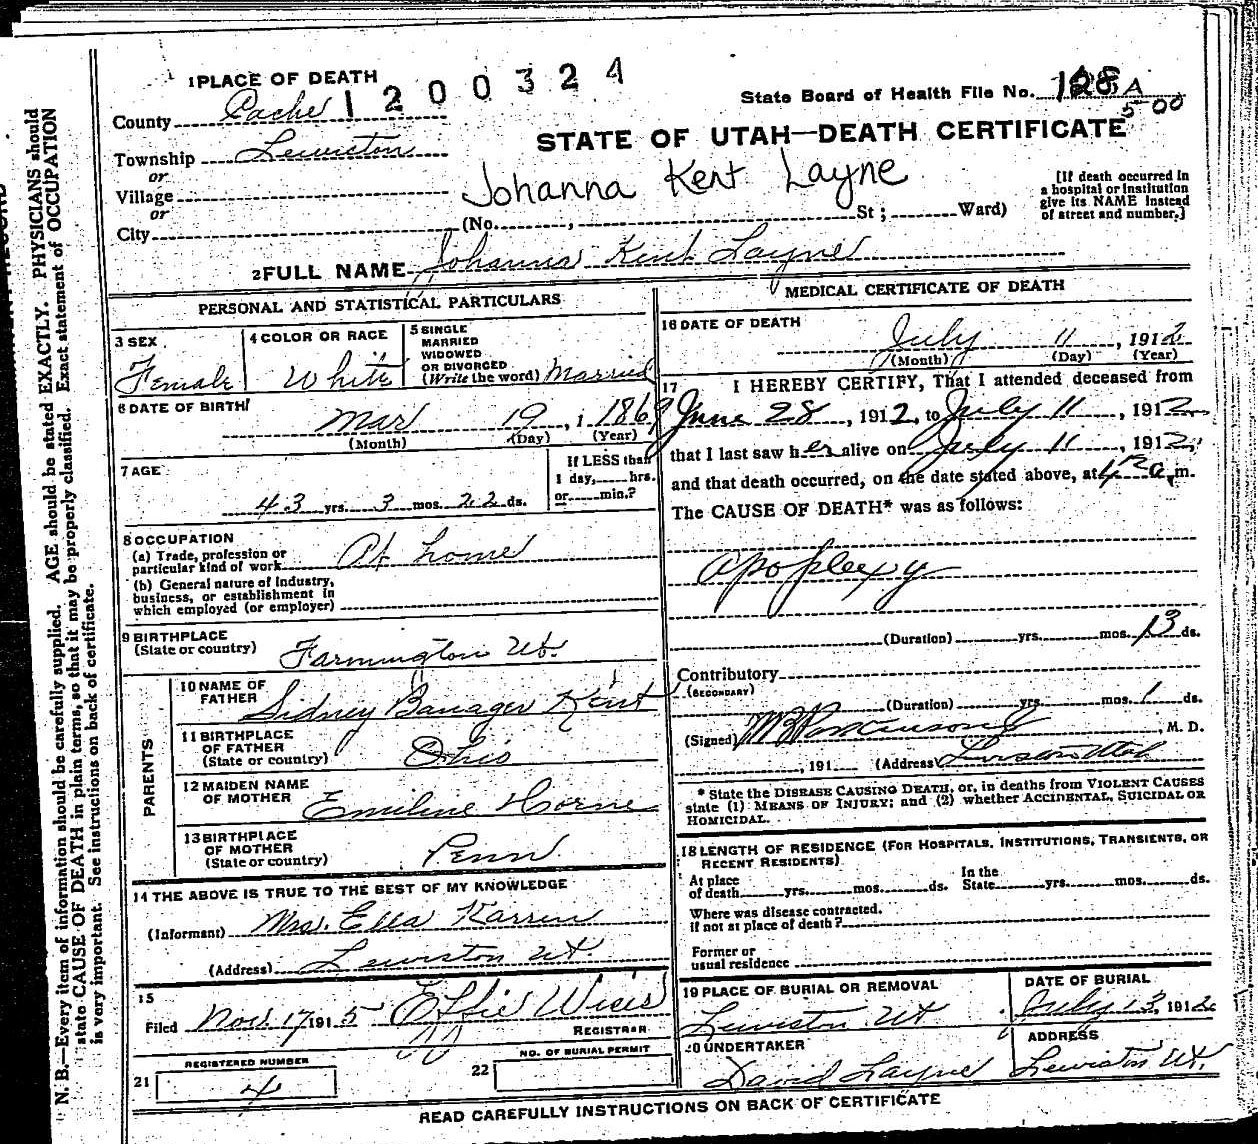 1 PLACE OF DEATH
1 2 0 0 3 2 4
State Board of Health File No. A
5 00
County Cache
STATE OF UTAH—DEATH CERTIFICATE
Township Lewiston
or
Village
or
City
Johanna Kent Layne
(No. , St ; Ward)
[If death occurred in
a hospital or institution
give its NAME instead
of street and number.]
2 FULL NAME Johanna Kent Layne
PERSONAL AND STATISTICAL PARTICULARS
3 SEX
Female
4 COLOR OR RACE
White
5 SINGLE
MARRIED
WIDOWED
OR DIVORCED
(Write the word) Married
6 DATE OF BIRTH
Mar 19, 1 1869
(Month) (Day) (Year)
7 AGE
43 yrs. 3 mos. 22 ds.
If LESS than
1 day, hrs.
or min.?
8 OCCUPATION
(a) Trade, profession or
particular kind of work At home
(b) General nature of industry,
business, or establishment in
which employed (or employer)
9 BIRTHPLACE
(State or country) Farmington Ut.
PARENTS
10 NAME OF
FATHER
Sidney Kent
11 BIRTHPLACE
OF FATHER
(State or country) Ohio
12 MAIDEN NAME
OF MOTHER Emiline Horne
13 BIRTHPLACE
OF MOTHER
(State or country) Penn.
14 THE ABOVE IS TRUE TO THE BEST OF MY KNOWLEDGE
(Informant) Mrs. Ella Karren
(Address) Lewiston Ut.
15
Filed Nov. 17 1915 Effie Wiser
REGISTRAR
REGISTERED NUMBER
21 4
NO. OF BURIAL PERMIT
22
MEDICAL CERTIFICATE OF DEATH
16 DATE OF DEATH
July 11, 1912
(Month) (Day) (Year)
17 I HEREBY CERTIFY, That I attended deceased from
June 28, 1912, to July 11, 1912
that I last saw her alive on July 11, 1912
and that death occurred, on the date stated above, at 4 a. m.
The CAUSE OF DEATH* was as follows:
Apoplexy
(Duration) yrs. mos. 13 ds.
Contributory
(SECONDARY)
(Duration) yrs. mos. 1 ds.
(Signed) , M. D.
, 191 (Address)
* State the DISEASE CAUSING DEATH, or, in deaths from VIOLENT CAUSES
state (1) MEANS OF INJURY; and (2) whether ACCIDENTAL, SUICIDAL OR
HOMICIDAL.
18 LENGTH OF RESIDENCE (FOR HOSPITALS, INSTITUTIONS, TRANSIENTS, OR
RECENT RESIDENTS)
At place
of death yrs. mos. ds.
In the
State yrs. mos. ds.
Where was disease contracted,
if not at place of death?
Former or
usual residence
19 PLACE OF BURIAL OR REMOVAL
Lewiston Ut
DATE OF BURIAL
July 13, 1912
20 UNDERTAKER
David Layne
ADDRESS
Lewiston Ut.
READ CAREFULLY INSTRUCTIONS ON BACK OF CERTIFICATE
N. B.—Every item of information should be carefully supplied. AGE should be stated EXACTLY. PHYSICIANS should
state CAUSE OF DEATH in plain terms, so that it may be properly classified. Exact statement of OCCUPATION
is very important. See instructions on back of certificate.